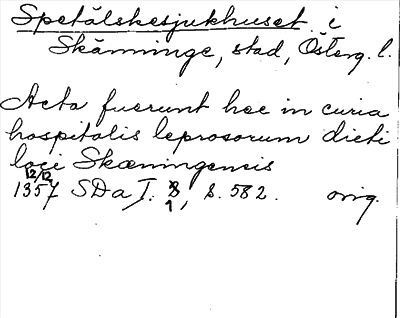 Spetälskesjukhuset i
Skänninge, stad, Österg. l.
Acta fuerunt hec in curia
hospitalis leprosorum dicti
loci Skæningensis
12/12
1357 SDa I. 8, s. 582. orig.
1